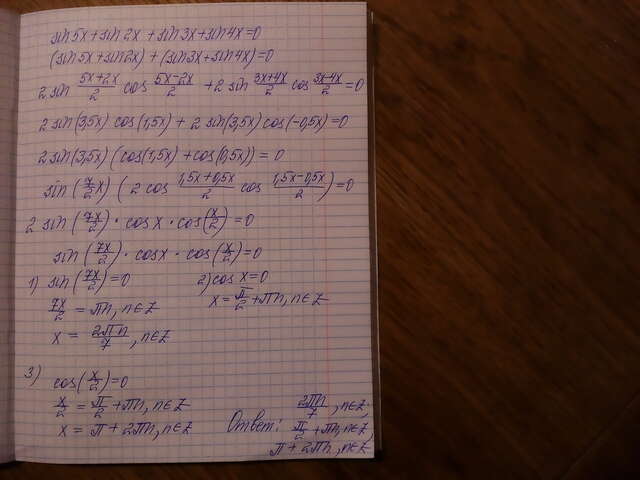 sin5x+sin2x+sin3x+sin4x=0
(sin5x+sin2x)+(sin3x+sin4x)=0
2 sin (5x+2x)/2 cos (5x-2x)/2 + 2 sin (3x+4x)/2 cos (3x-4x)/2 = 0
2 sin(3,5x) cos(1,5x) + 2 sin(3,5x) cos(-0,5x)=0
2 sin(3,5x) (cos(1,5x) + cos(0,5x)) = 0
sin (7/2 x) (2 cos (1,5x+0,5x)/2 cos (1,5x-0,5x)/2)=0
2 sin (7x/2) · cos x · cos(x/2) = 0
sin (7x/2) · cosx · cos(x/2)=0
1) sin(7x/2)=0
7x/2 = πn, n∈Z
x = 2πn/7, n∈Z
2) cos x=0
x= π/2 +πn, n∈Z
3)
cos(x/2)=0
x/2 = π/2 + πn, n∈Z
x = π + 2πn, n∈Z
Ответ: 2πn/7, n∈Z,
π/2 + πn, n∈Z,
π + 2πn, n∈Z